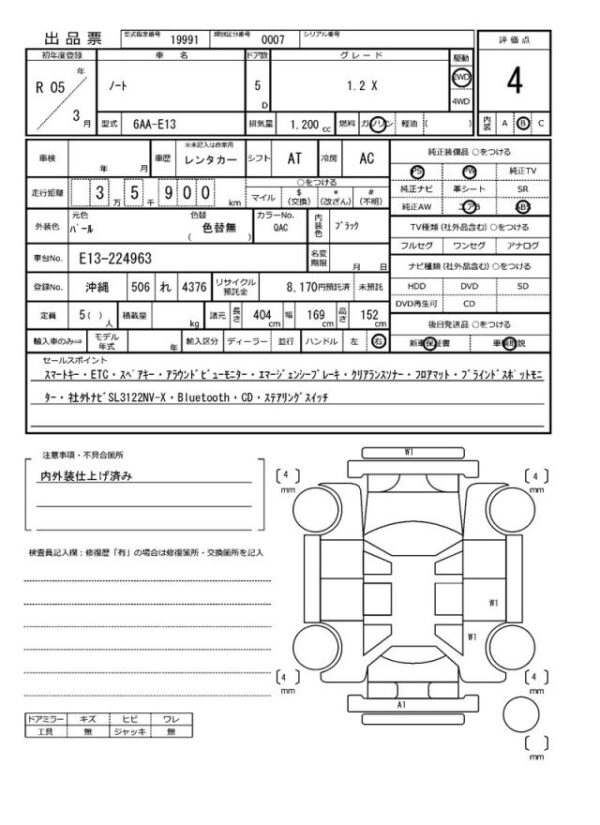 出品票 型式指定番号 19991 類別区分番号 0007 シリアル番号
評価点
4
内装 A B C
初年度登録 車名 ドア数 グレード 駆動
R 05 年 3 月 ノート 5 D 1.2 X 2WD 4WD
型式 6AA-E13 排気量 1,200 cc 燃料 ガソリン 軽油 ( )
車検 年 月 車歴 ※未記入は自家用 レンタカー シフト AT 冷房 AC
走行距離 3 万 5 千 9 0 0 km ○をつける
マイル $ (交換) * (改ざん) # (不明)
外装色 元色 パール 色替 色替無 ( ) カラーNo. QAC 内装色 ブラック
車台No. E13-224963 名変期限 月 日
登録No. 沖縄 506 れ 4376 リサイクル預託金 8,170円預託済 未預託
定員 5( ) 人 積載量 kg 諸元 長さ 404 cm 幅 169 cm 高さ 152 cm
輸入車のみ⇒ モデル年式 年 輸入区分 ディーラー 並行 ハンドル 左 右
純正装備品 ○をつける
PS PW 純正TV
純正ナビ 革シート SR
純正AW エアB ABS
TV種類(社外品含む) ○をつける
フルセグ ワンセグ アナログ
ナビ種類(社外品含む) ○をつける
HDD DVD SD
DVD再生可 CD
後日発送品 ○をつける
新車保証書 車輌取説
セールスポイント
スマートキー・ETC・スペアキー・アラウンドビューモニター・エマージェンシーブレーキ・クリアランスソナー・フロアマット・ブラインドスポットモニ
ター・社外ナビSL3122NV-X・Bluetooth・CD・ステアリングスイッチ
注意事項・不具合箇所
内外装仕上げ済み
検査員記入欄：修復歴「有」の場合は修復箇所・交換箇所を記入
ドアミラー キズ ヒビ ワレ
工具 無 ジャッキ 無
W1
( 4 ) mm ( 4 ) mm
W1
W1
( 4 ) mm ( 4 ) mm
A1
( ) mm